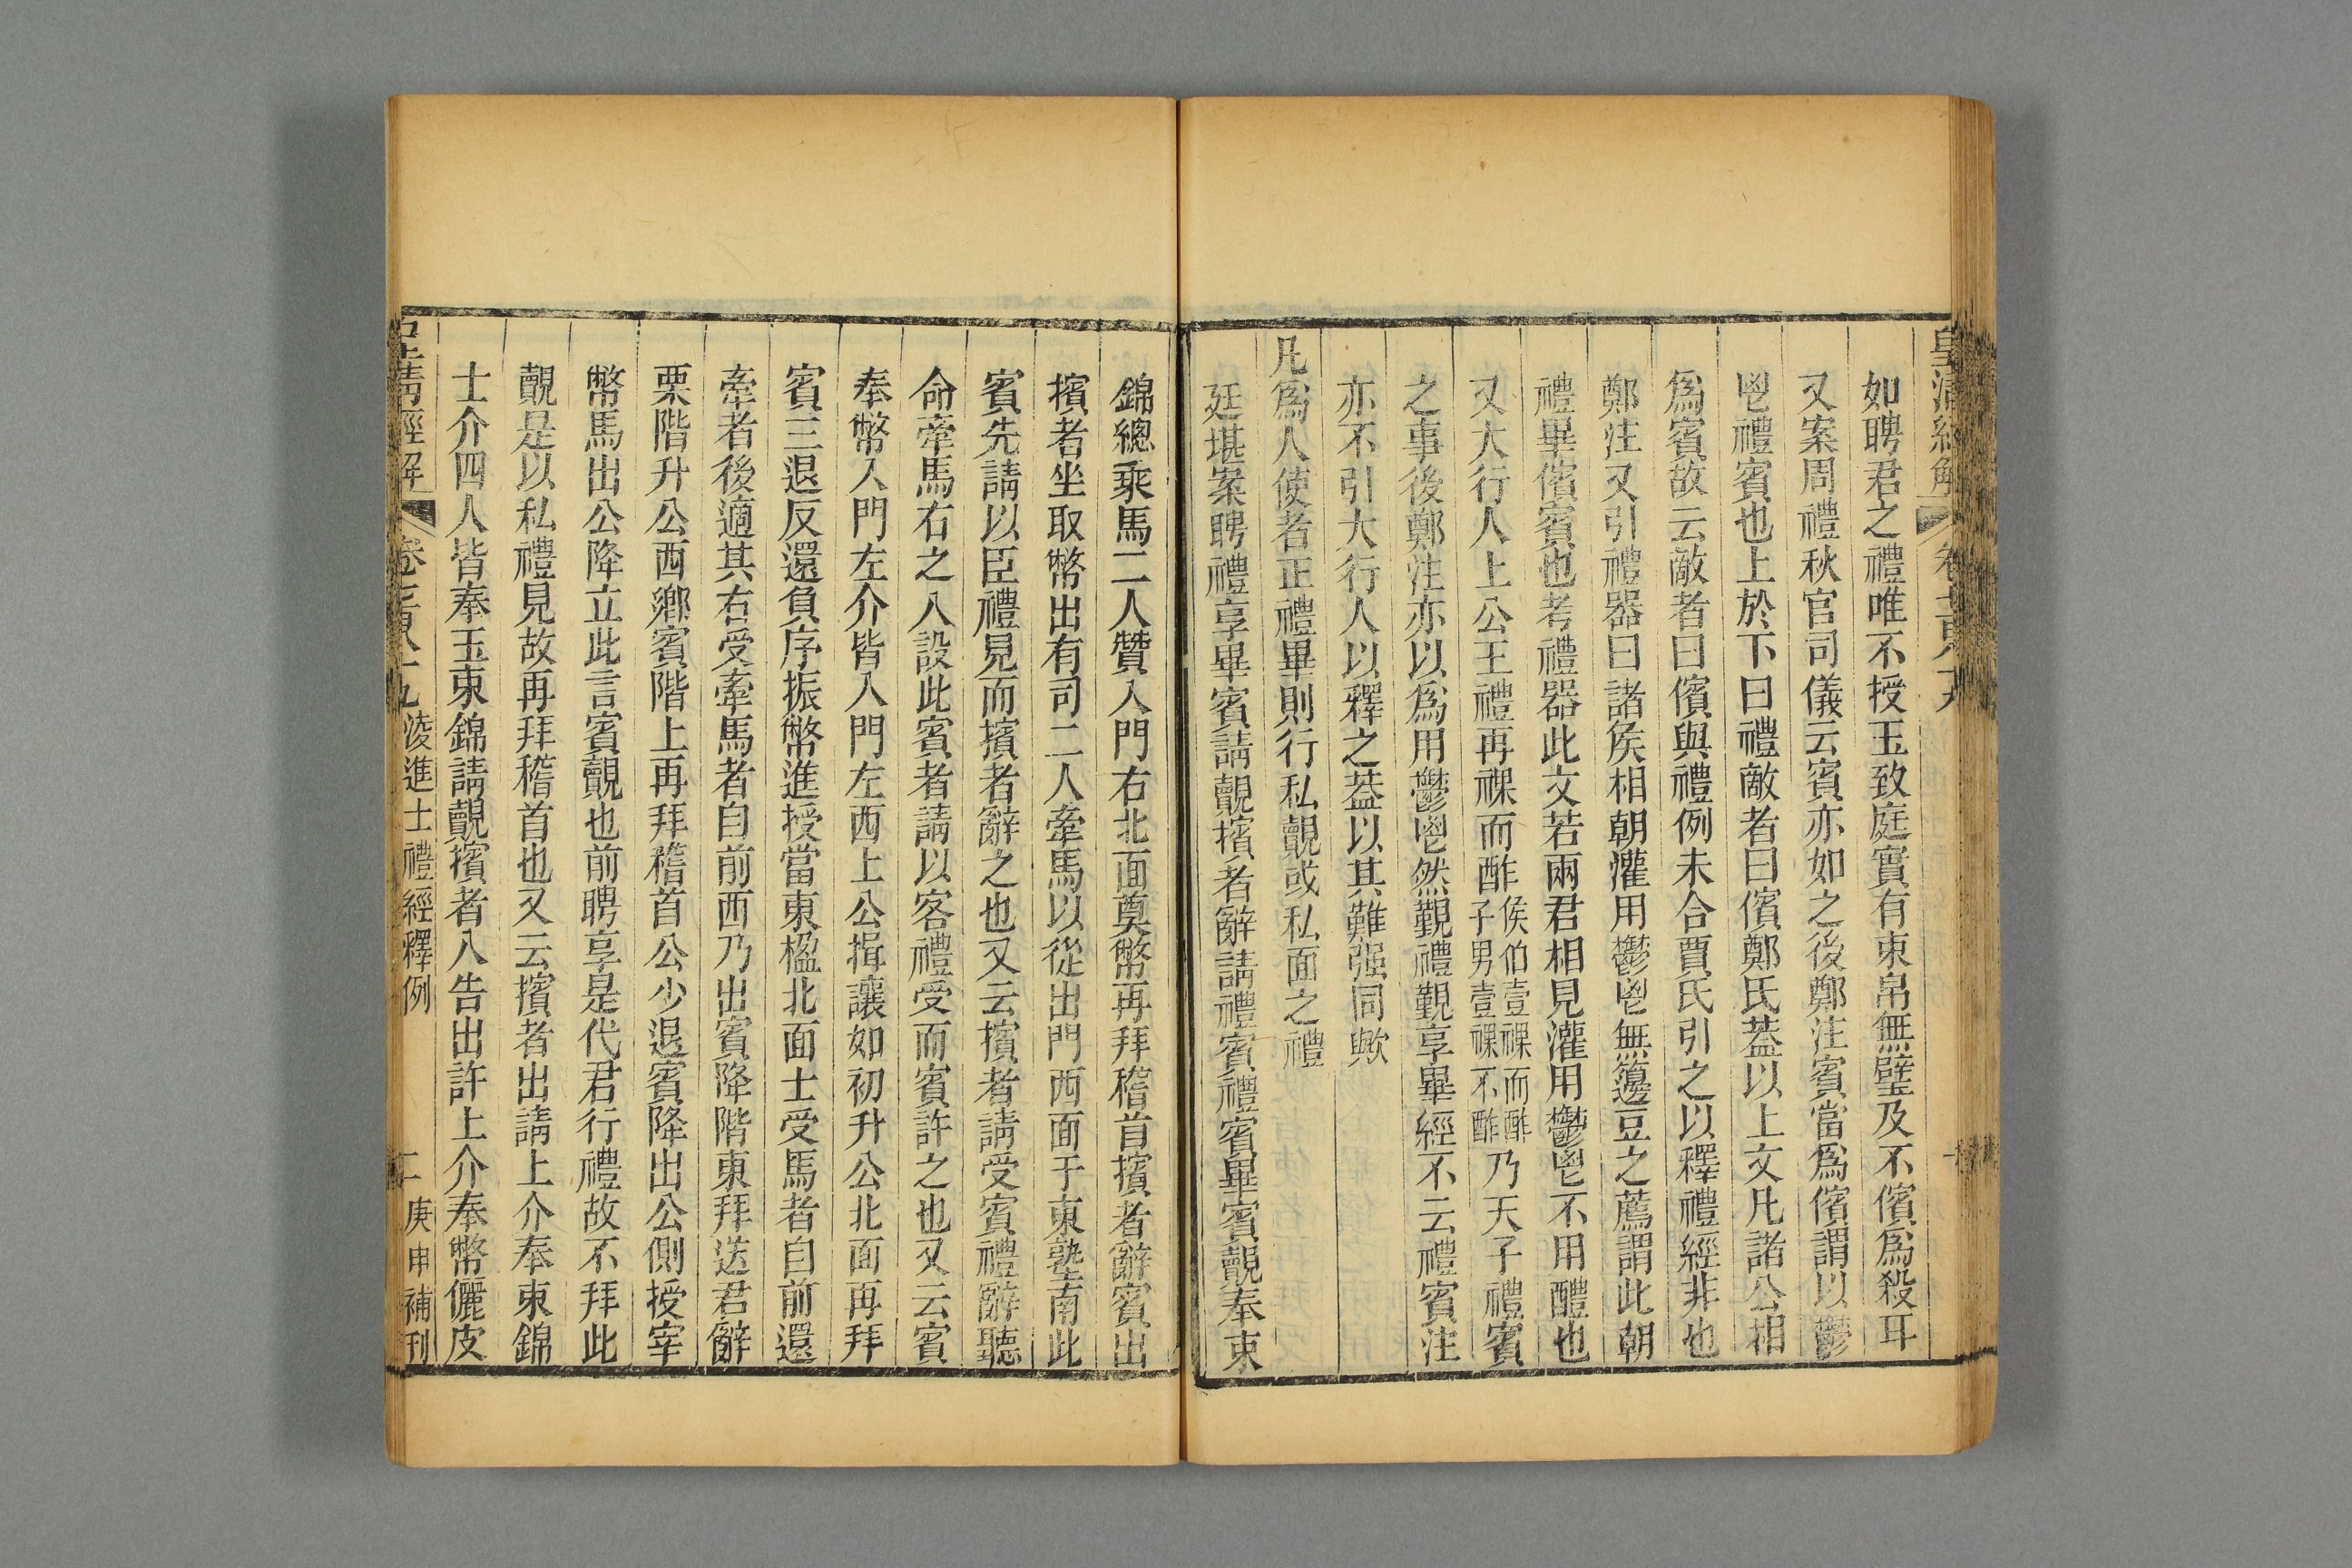 皇清經解
卷七百八十九
如聘君之禮唯不授玉致庭實有束帛無璧及不儐爲殺耳
又案周禮秋官司儀云賓亦如之後鄭注賓當爲儐謂以鬱
鬯禮賓也上於下曰禮敵者曰儐鄭氏葢以上文凡諸公相
爲賓故云敵者曰儐與禮例未合賈氏引之以釋禮經非也
鄭注又引禮器曰諸侯相朝灌用鬱鬯無籩豆之薦謂此朝
禮畢儐賓也考禮器此文若兩君相見灌用鬱鬯不用醴也
又大行人上公王禮再祼而酢侯伯壹祼而酢子男壹祼不酢乃天子禮賓
之事後鄭注亦以爲用鬱鬯然覲禮覲享畢經不云禮賓注
亦不引大行人以釋之葢以其難强同歟
凡爲人使者正禮畢則行私覿或私面之禮
廷堪案聘禮享畢賓請覿擯者辭請禮賓禮賓畢賓覿奉束
錦總乘馬二人贊入門右北面奠幣再拜稽首擯者辭賓出
擯者坐取幣出有司二人牽馬以從出門西面于東塾南此
賓先請以臣禮見而擯者辭之也又云擯者請受賓禮辭聽
命牽馬右之入設此賓者請以客禮受而賓許之也又云賓
奉幣入門左介皆入門左西上公揖讓如初升公北面再拜
賓三退反還負序振幣進授當東楹北面士受馬者自前還
牽者後適其右受牽馬者自前西乃出賓降階東拜送君辭
栗階升公西鄉賓階上再拜稽首公少退賓降出公側授宰
幣馬出公降立此言賓覿也前聘享是代君行禮故不拜此
覿是以私禮見故再拜稽首也又云擯者出請上介奉束錦
士介四人皆奉玉束錦請覿擯者入告出許上介奉幣儷皮
皇清經解
卷七百八十九
淩進士禮經釋例
二
庚申補刊